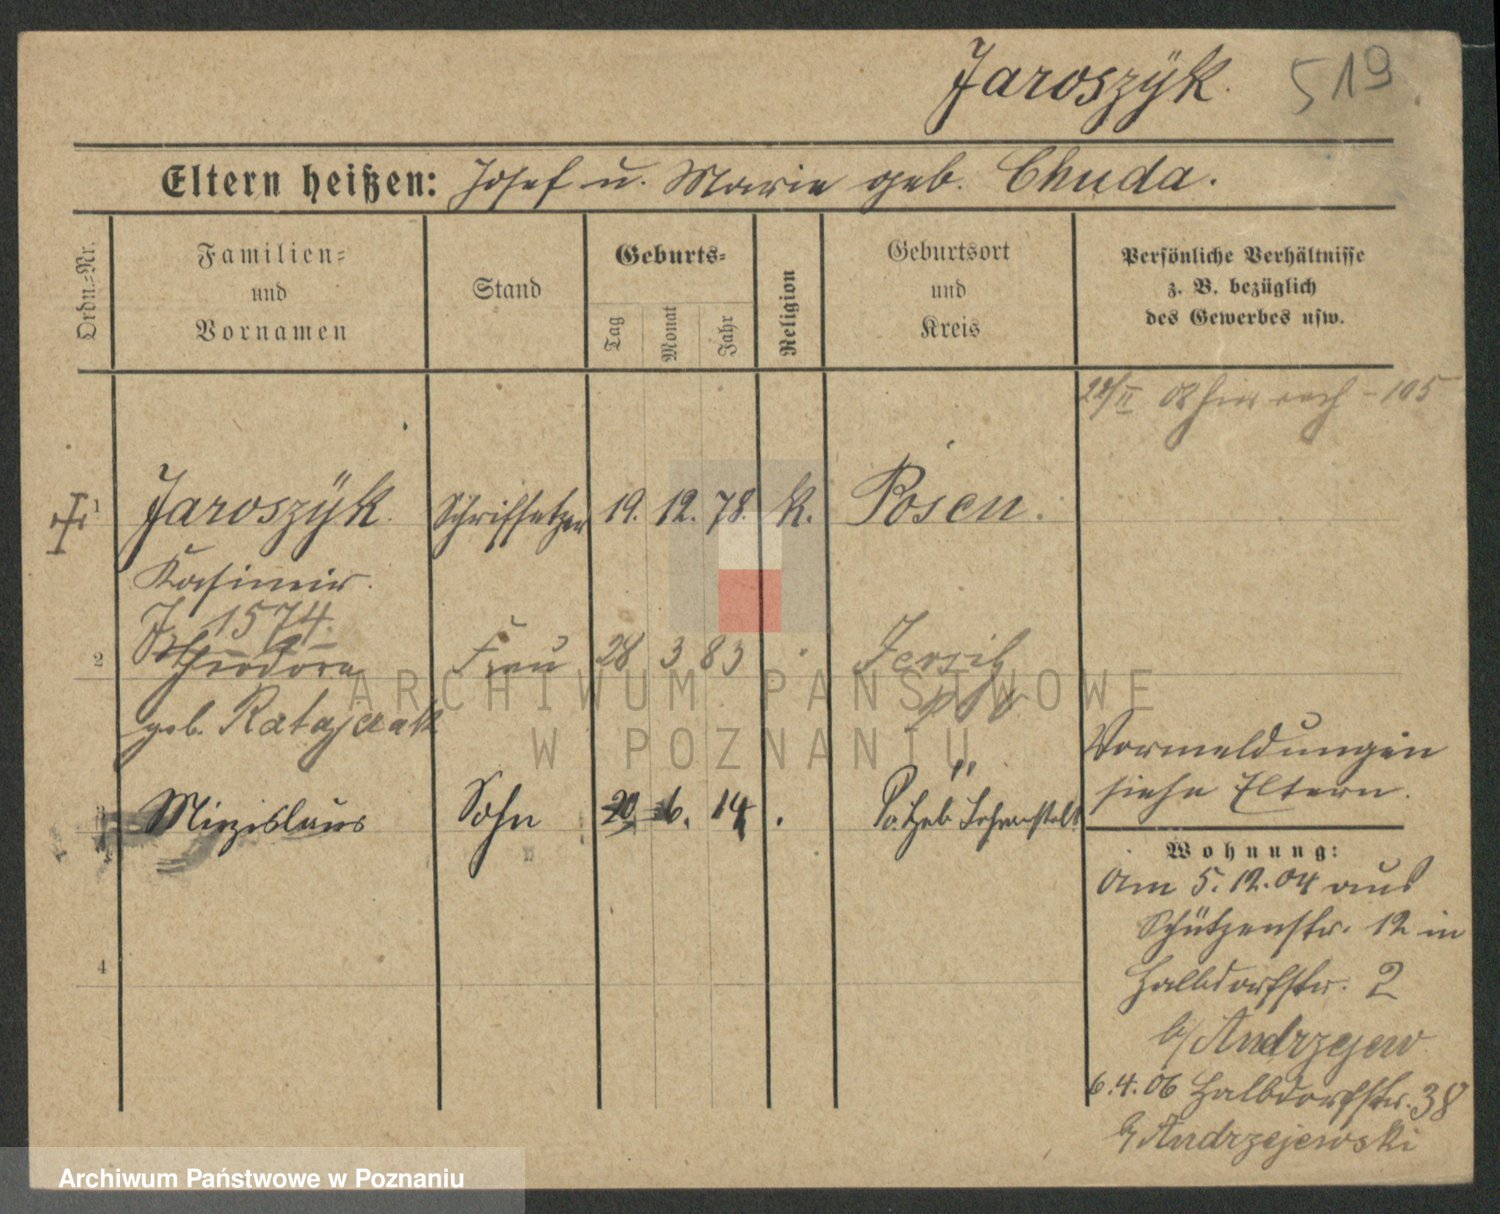 Jaroszÿk. 519
Eltern heißen: Josef u. Marie geb. Chuda.
Ordn.-Nr.
Familien-
und
Vornamen
Stand
Geburts-
Tag
Monat
Jahr
Religion
Geburtsort
und
Kreis
Persönliche Verhältnisse
z. B. bezüglich
des Gewerbes usw.
1 Jaroszÿk. Schriftsetzer 19. 12. 78. K. Posen.
Kasimir.
1574.
2 Theodora Frau 28 3 83 Jersitz
geb. Ratajczak
3 Miezislaus Sohn 20. 6. 14
4
Vormeldungen
siehe Eltern.
Wohnung:
Am 5. 12. 04 aus
Schützenstr. 12 in
Halbdorfstr. 2
b/ Andrzejew
6.4.06 Halbdorfstr. 38
b/ Andrzejewski
ARCHIWUM PAŃSTWOWE
W POZNANIU
Archiwum Państwowe w Poznaniu